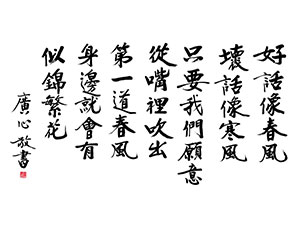 好話像春風
壞話像寒風
只要我們願意
從嘴裡吹出
第一道春風
身邊就會有
似錦繁花
廣心敬書